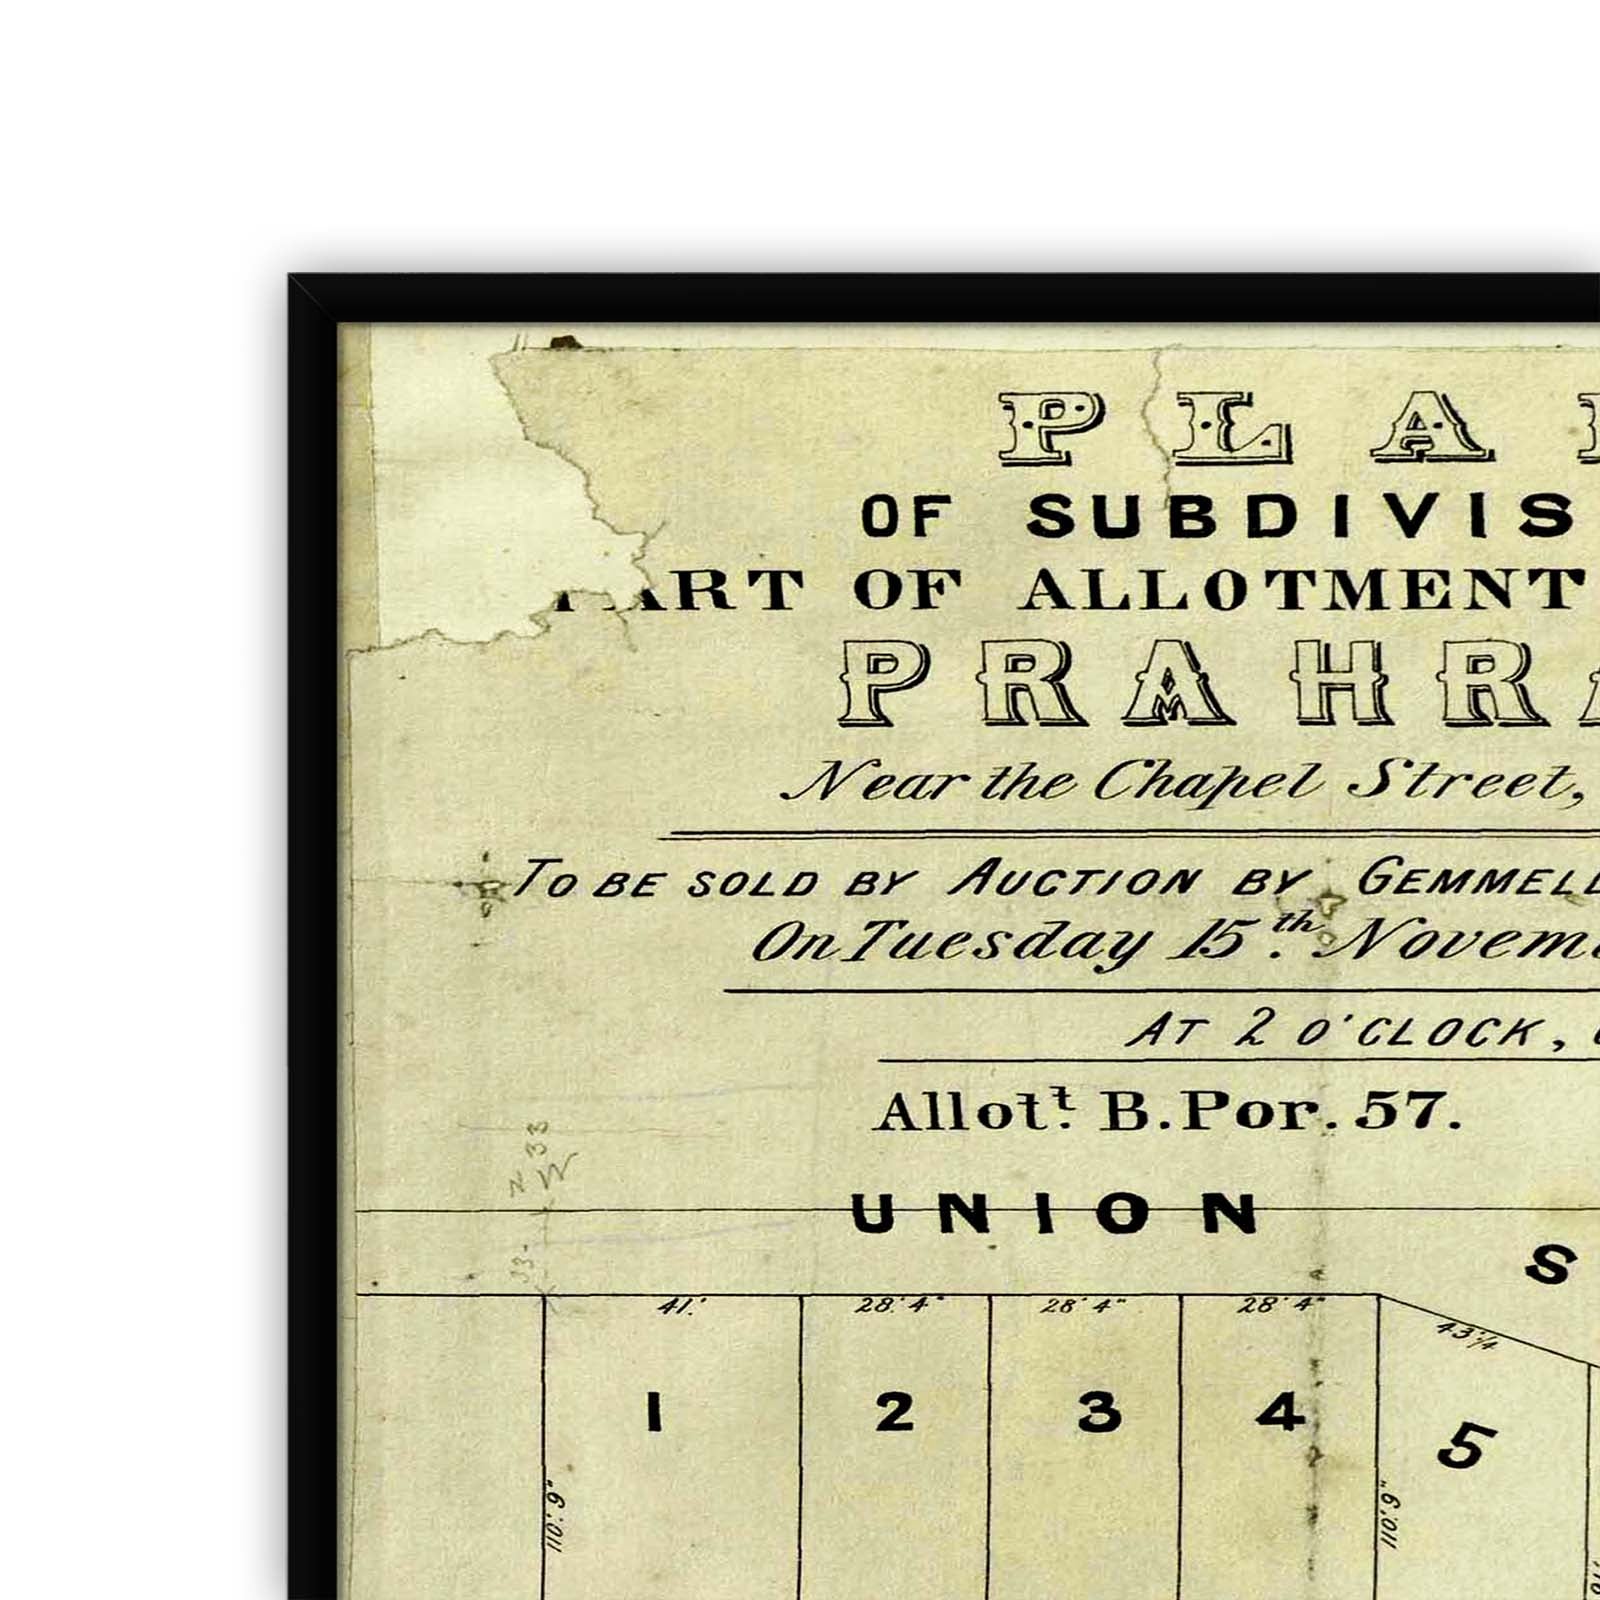 PLA
OF SUBDIVIS
PART OF ALLOTMENT
PRAHRA
Near the Chapel Street,
TO BE SOLD BY AUCTION BY GEMMELL
On Tuesday 15th. Novem
AT 2 O'CLOCK,
Allott. B. Por. 57.
UNION
S
41.' 28' 4" 28' 4" 28' 4"
43'/4
1 2 3 4 5
110'.9" 110'.9"